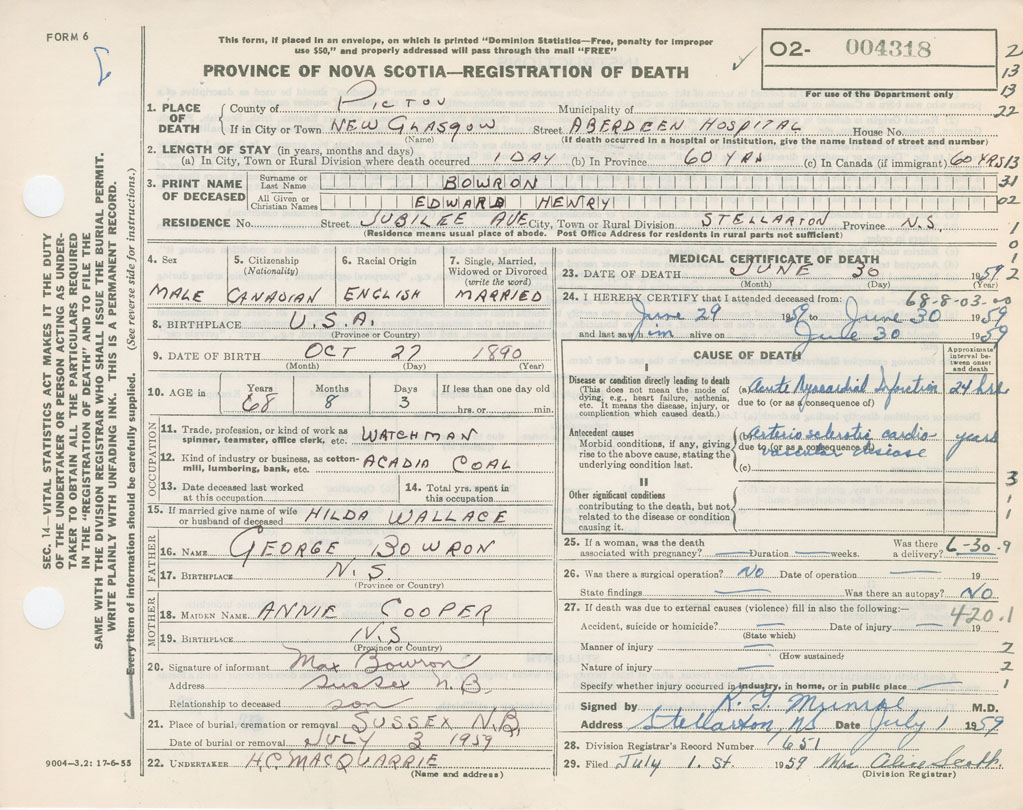 FORM 6
This form, if placed in an envelope, on which is printed "Dominion Statistics—Free, penalty for improper
use $50," and properly addressed will pass through the mail "FREE"
PROVINCE OF NOVA SCOTIA—REGISTRATION OF DEATH
O2- 004318
For use of the Department only
2
13
13
22
1. PLACE OF DEATH
County of PICTOU Municipality of
If in City or Town NEW GLASGOW Street ABERDEEN HOSPITAL House No.
(Name) (If death occurred in a hospital or institution, give the name instead of street and number)
2. LENGTH OF STAY (in years, months and days)
(a) In City, Town or Rural Division where death occurred 1 DAY (b) In Province 60 YRS (c) In Canada (if immigrant) 60 YRS 13
3. PRINT NAME OF DECEASED
Surname or Last Name BOWRON 31
All Given or Christian Names EDWARD HENRY 02
RESIDENCE No. Street JUBILEE AVE City, Town or Rural Division STELLARTON Province N.S. 1
(Residence means usual place of abode. Post Office Address for residents in rural parts not sufficient)
0
1
2
4. Sex
MALE
5. Citizenship
(Nationality)
CANADIAN
6. Racial Origin
ENGLISH
7. Single, Married,
Widowed or Divorced
(write the word)
MARRIED
8. BIRTHPLACE U.S.A.
(Province or Country)
9. DATE OF BIRTH OCT 27 1890
(Month) (Day) (Year)
10. AGE in
Years
68
Months
8
Days
3
If less than one day old
hrs. or min.
OCCUPATION
11. Trade, profession, or kind of work as
spinner, teamster, office clerk, etc. WATCHMAN
12. Kind of industry or business, as cotton-
mill, lumbering, bank, etc. ACADIA COAL
13. Date deceased last worked
at this occupation
14. Total yrs. spent in
this occupation
15. If married give name of wife
or husband of deceased HILDA WALLACE
FATHER
16. NAME GEORGE BOWRON
17. BIRTHPLACE N.S.
(Province or Country)
MOTHER
18. MAIDEN NAME ANNIE COOPER
19. BIRTHPLACE N.S.
(Province or Country)
20. Signature of informant Max Bowron
Address Sussex N.B.
Relationship to deceased son
21. Place of burial, cremation or removal SUSSEX N.B.
Date of burial or removal JULY 3 1959
22. UNDERTAKER H.C. MACQUARRIE
(Name and address)
MEDICAL CERTIFICATE OF DEATH
23. DATE OF DEATH JUNE 30 1959
(Month) (Day) (Year)
24. I HEREBY CERTIFY that I attended deceased from: 68-8-03-00
June 29 1959 to June 30 1959
and last saw him alive on June 30 1959
CAUSE OF DEATH
Approximate
interval be-
tween onset
and death
I
Disease or condition directly leading to death
(This does not mean the mode of
dying, e.g., heart failure, asthenia,
etc. It means the disease, injury, or
complication which caused death.)
(a) Acute Myocardial Infarction 24 hrs
due to (or as a consequence of)
Antecedent causes
Morbid conditions, if any, giving
rise to the above cause, stating the
underlying condition last.
(b) Arterio sclerotic cardio years
due to (or as a consequence of)
vascular disease
(c)
II
Other significant conditions
contributing to the death, but not
related to the disease or condition
causing it.
3
1
1
25. If a woman, was the death
associated with pregnancy? Duration weeks.
Was there
a delivery? 6-30-9
26. Was there a surgical operation? No Date of operation 19
State findings Was there an autopsy? No
27. If death was due to external causes (violence) fill in also the following:—
420.1
Accident, suicide or homicide? Date of injury 19
(State which)
Manner of injury 2
(How sustained)
Nature of injury 2
Specify whether injury occurred in industry, in home, or in public place 1
Signed by M.D.
Address Stellarton, NS Date July 1 1959
28. Division Registrar's Record Number 651
29. Filed July 1. St. 1959 Mrs. Alice Scott
(Division Registrar)
SEC. 14—VITAL STATISTICS ACT MAKES IT THE DUTY
OF THE UNDERTAKER OR PERSON ACTING AS UNDER-
TAKER TO OBTAIN ALL THE PARTICULARS REQUIRED
IN THE "REGISTRATION OF DEATH" AND TO FILE THE
SAME WITH THE DIVISION REGISTRAR WHO SHALL ISSUE THE BURIAL PERMIT.
WRITE PLAINLY WITH UNFADING INK. THIS IS A PERMANENT RECORD.
Every item of information should be carefully supplied. (See reverse side for instructions.)
9004-3.2: 17-6-55